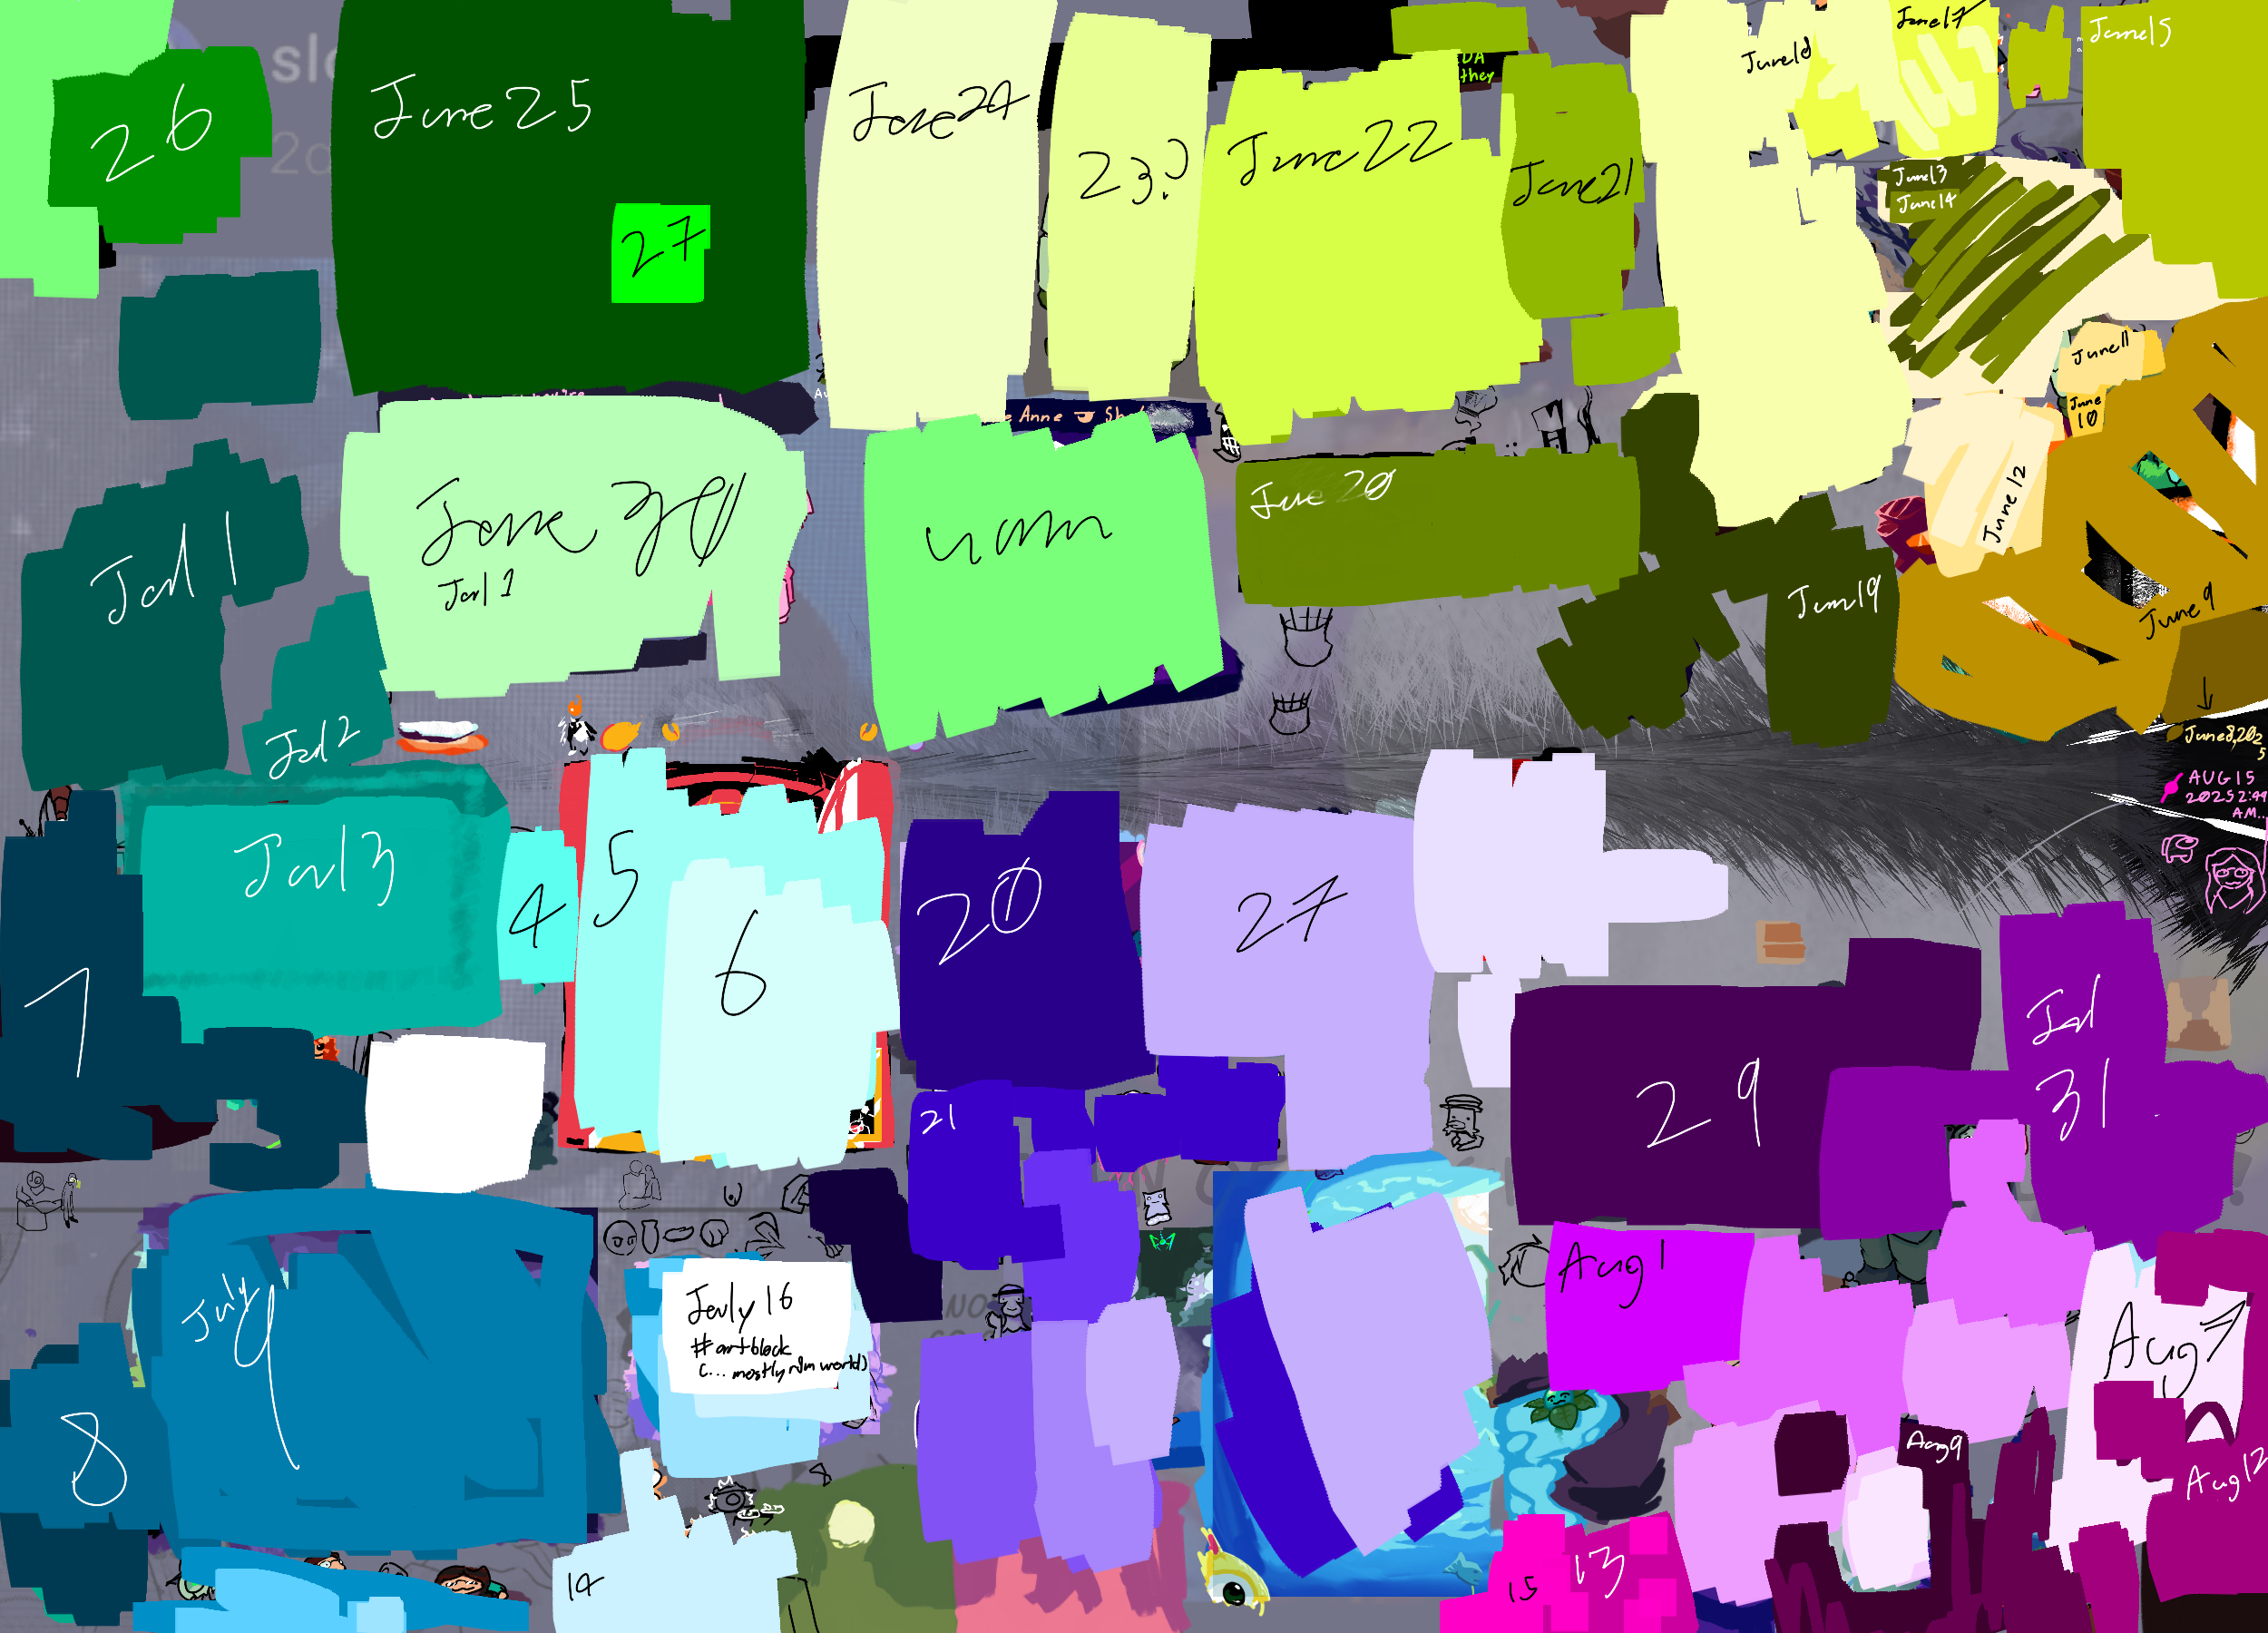 26
June 25
27
June 24
23?
June 22
June 21
DA
they
June 18
June 17
June 15
June 13
June 14
June 11
June
10
June 12
June 9
June 8, 202
5
AUG 15
2025 2:44
AM..
Anne
June 20
Jun 19
June 30
Jul 1
Jul 1
Jul 2
Jul 3
4
5
6
7
20
27
21
29
Jul
31
8
July
9
July 16
#artblock
(... mostly rim world)
14
Aug 1
Aug 7
Aug 9
Aug 12
13
15